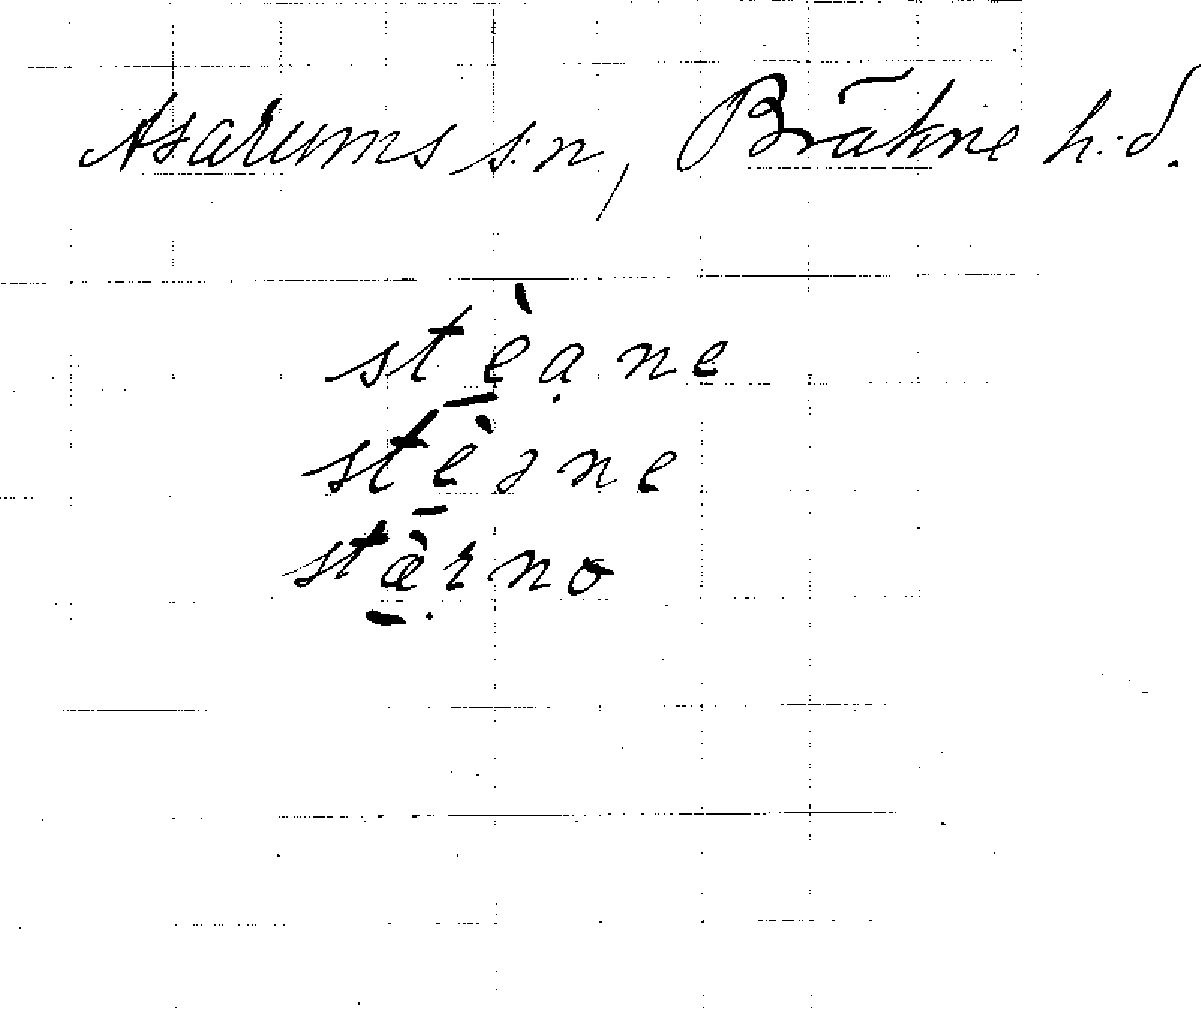 Asarums s:n, Bräkne h:d.
stè̱ạne
stè̱ɜne
stæ̱̀rṇo